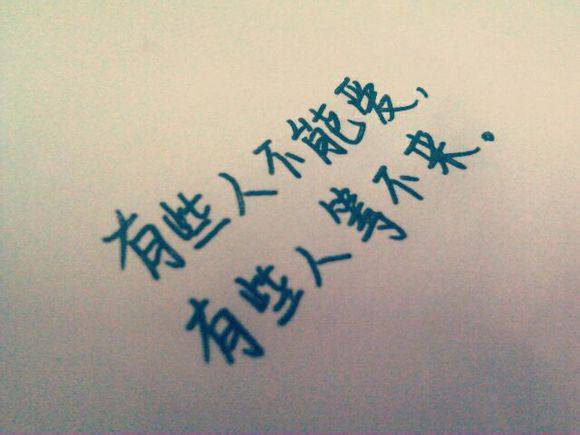 有些人不能爱,
有些人等不来。